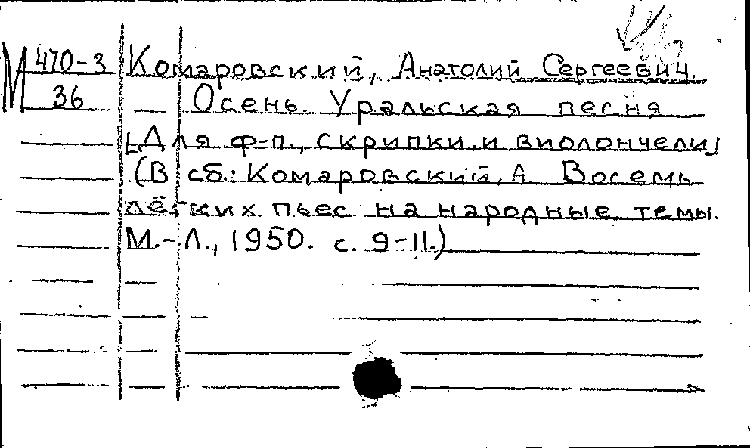 М 470-3 Комаровский, Анатолий Сергеевич.
36 — Осень. Уральская песня
[Для ф-п., скрипки и виолончели]
(В сб.: Комаровский, А. Восемь
лёгких пьес на народные темы.
М.-Л., 1950. с. 9-11.)